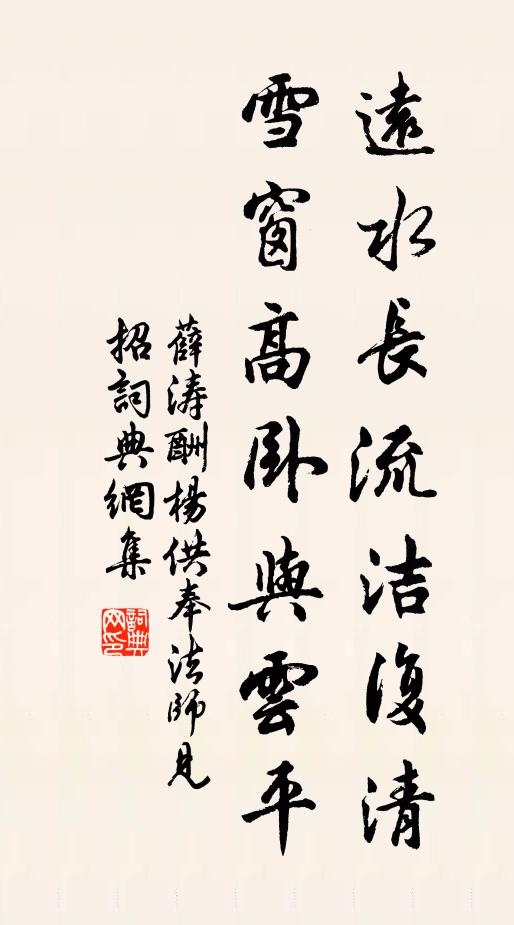 遠水長流洁復清
雪窗高卧與雲平
薛涛酬楊供奉法師見
招詞典網集
詞典
网印